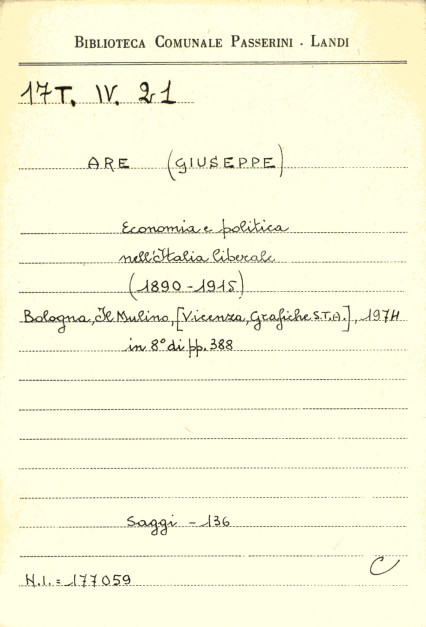 BIBLIOTECA COMUNALE PASSERINI - LANDI
17T. IV. 21
ARE (GIUSEPPE)
Economia e politica
nell'Italia liberale
(1890-1915)
Bologna, Il Mulino, [Vicenza, Grafiche S.T.A.], 1974
in 8° di pp. 388
Saggi - 136
C
N.I. = 177059